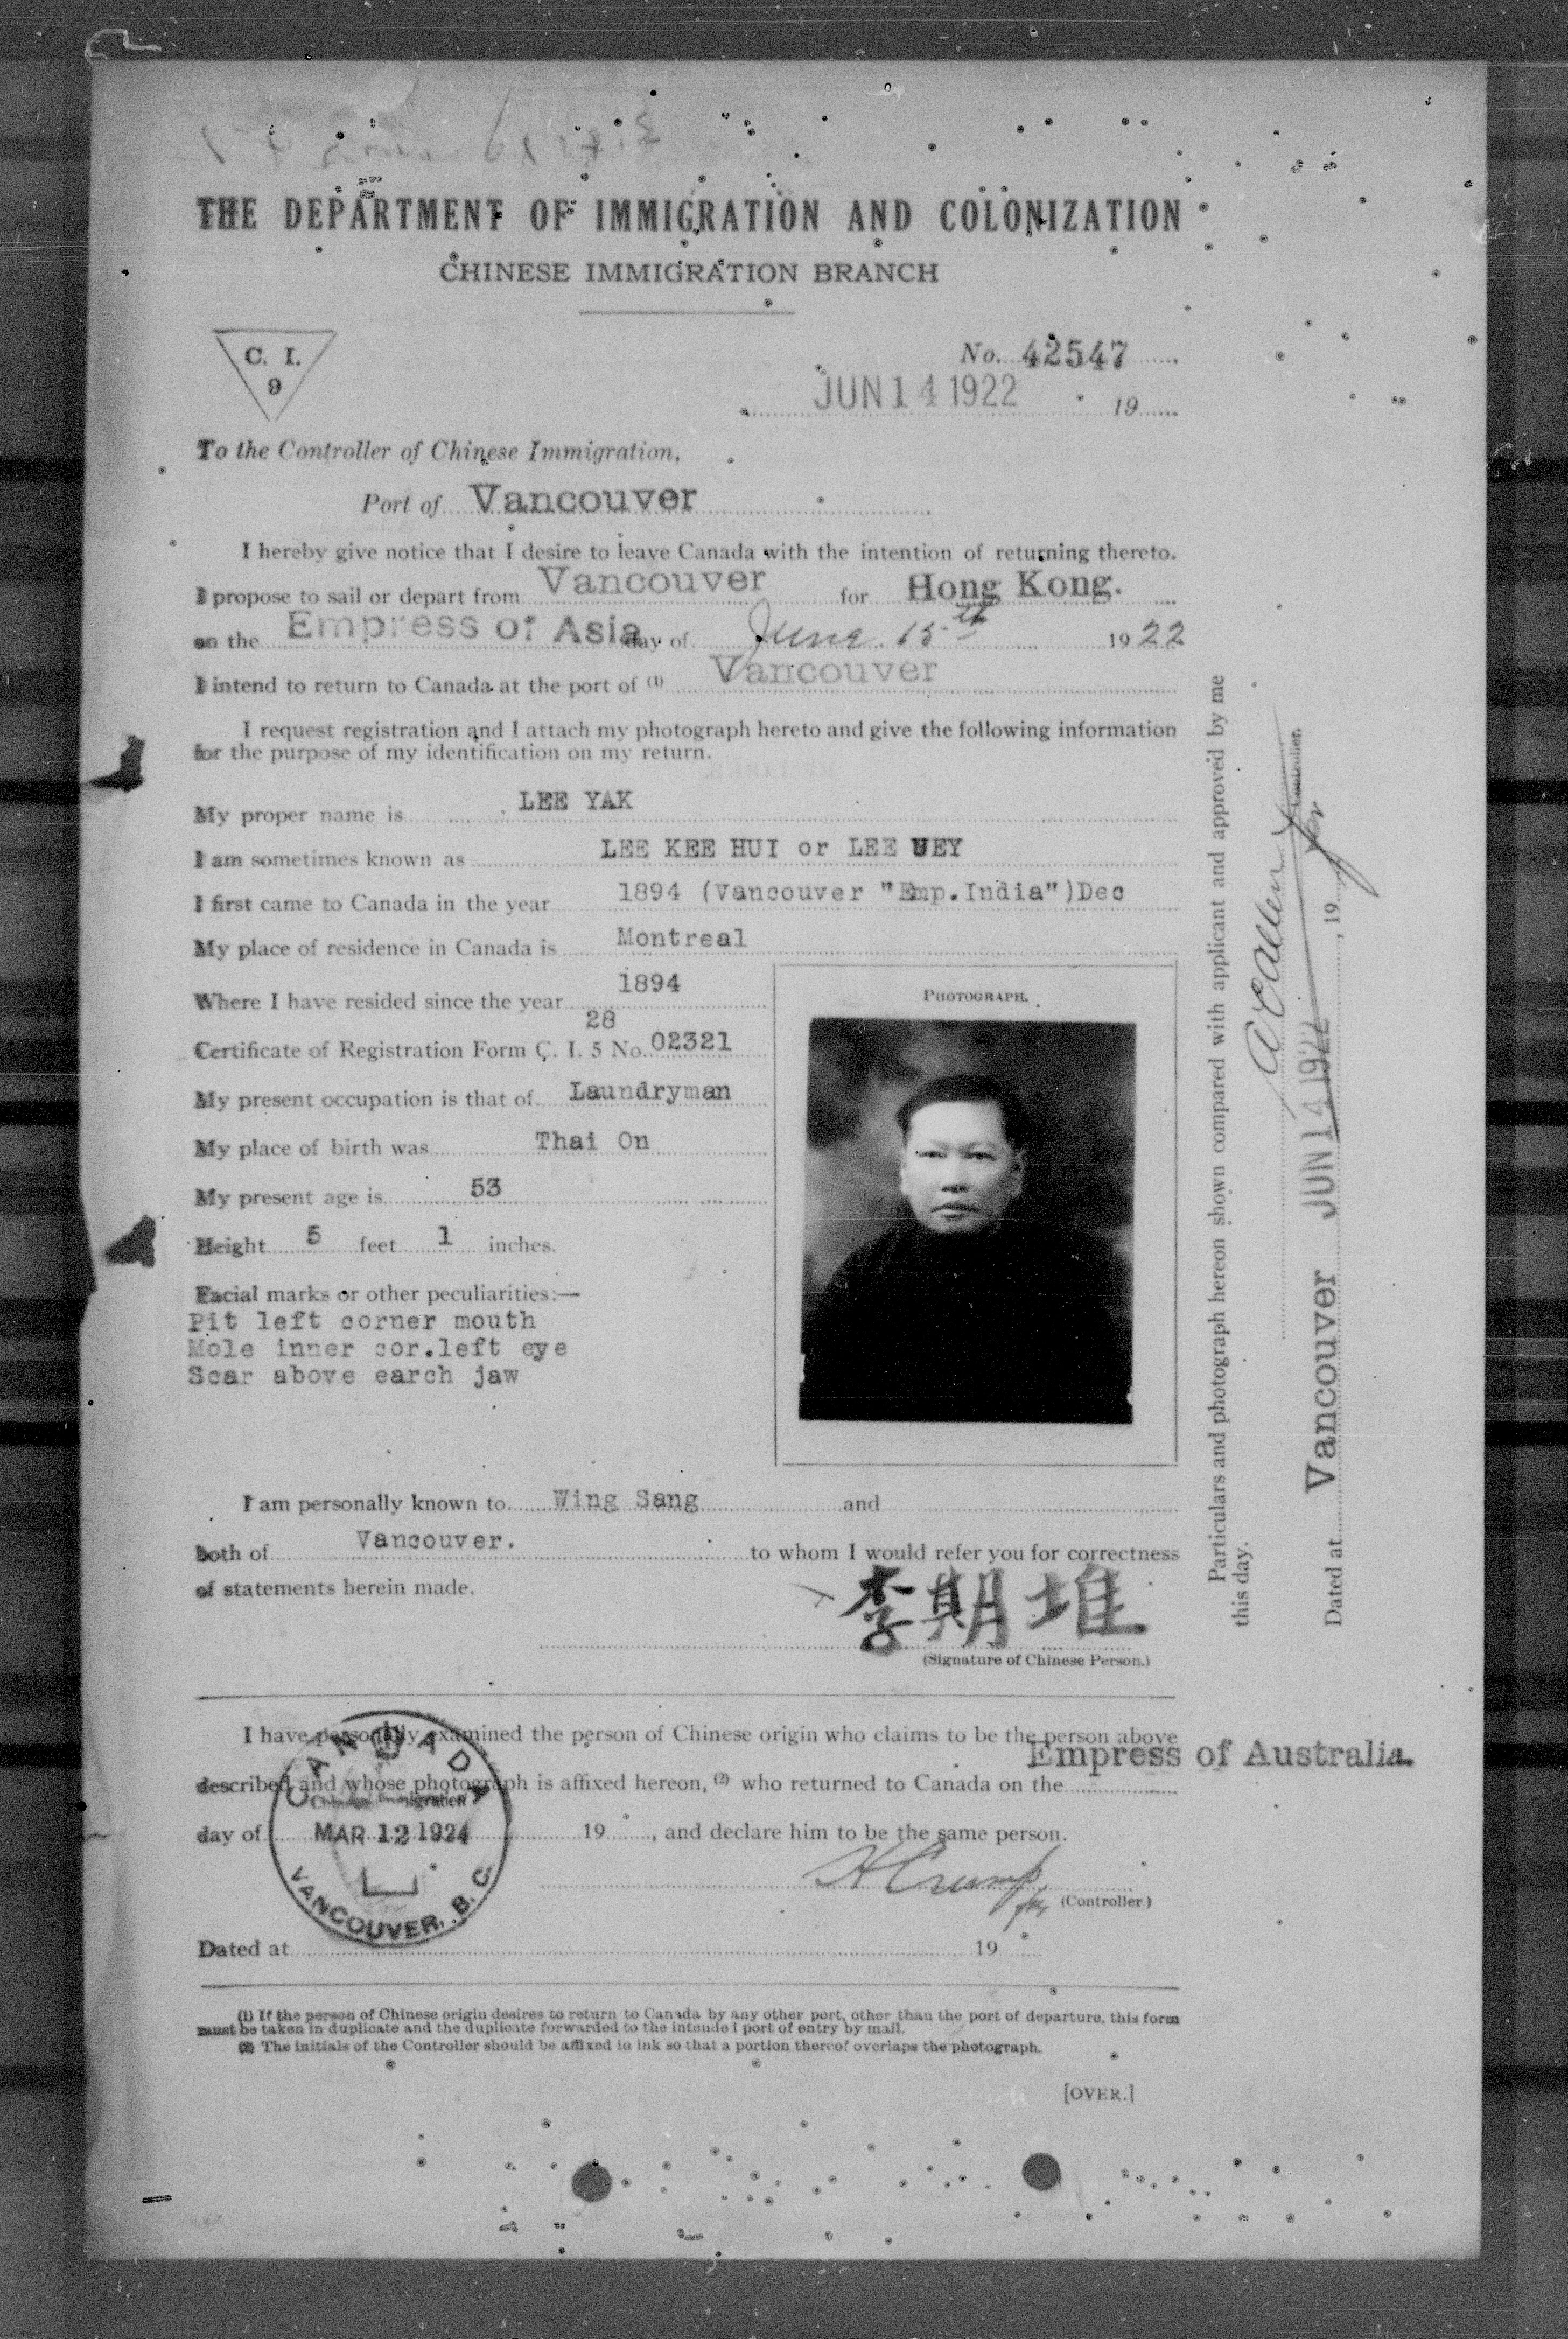 THE DEPARTMENT OF IMMIGRATION AND COLONIZATION
CHINESE IMMIGRATION BRANCH
C. I.
9
No. 42547
JUN 14 1922 19
To the Controller of Chinese Immigration,
Port of Vancouver
I hereby give notice that I desire to leave Canada with the intention of returning thereto.
I propose to sail or depart from Vancouver for Hong Kong.
on the Empress of Asia day of June 15th 1922
I intend to return to Canada at the port of (1) Vancouver
I request registration and I attach my photograph hereto and give the following information
for the purpose of my identification on my return.
My proper name is LEE YAK
I am sometimes known as LEE KEE HUI or LEE UEY
I first came to Canada in the year 1894 (Vancouver "Emp.India")Dec
My place of residence in Canada is Montreal
Where I have resided since the year 1894
28
Certificate of Registration Form C. I. 5 No. 02321
My present occupation is that of Laundryman
My place of birth was Thai On
My present age is 53
Height 5 feet 1 inches.
Facial marks or other peculiarities:—
Pit left corner mouth
Mole inner cor.left eye
Scar above earch jaw
PHOTOGRAPH.
I am personally known to Wing Sang and
both of Vancouver. to whom I would refer you for correctness
of statements herein made.
李期堆
(Signature of Chinese Person.)
I have personally examined the person of Chinese origin who claims to be the person above
Empress of Australia.
described and whose photograph is affixed hereon, (2) who returned to Canada on the
day of 19 , and declare him to be the same person.
CANADA
Immigration
MAR 12 1924
VANCOUVER, B. C.
H Crump
for (Controller)
Dated at 19
(1) If the person of Chinese origin desires to return to Canada by any other port, other than the port of departure, this form
must be taken in duplicate and the duplicate forwarded to the intended port of entry by mail.
(2) The initials of the Controller should be affixed in ink so that a portion thereof overlaps the photograph.
[OVER.]
Particulars and photograph hereon shown compared with applicant and approved by me
this day.
Controller.
for
Dated at Vancouver JUN 14 1922 , 19